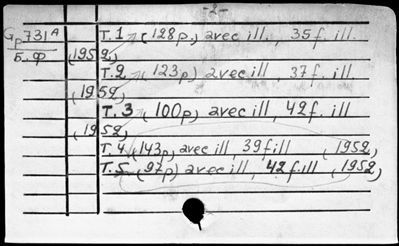 -2-
Gp731A T.1 (128p.) avec ill, 35f. ill.
Б.Ф (1952)
T.2 (123p) avec ill, 37f. ill.
(1952)
T.3 (100p) avec ill, 42f. ill
(1952)
T.4 (143p) avec ill, 39fill (1952)
T.5 (97p) avec ill, 42f.ill (1952)